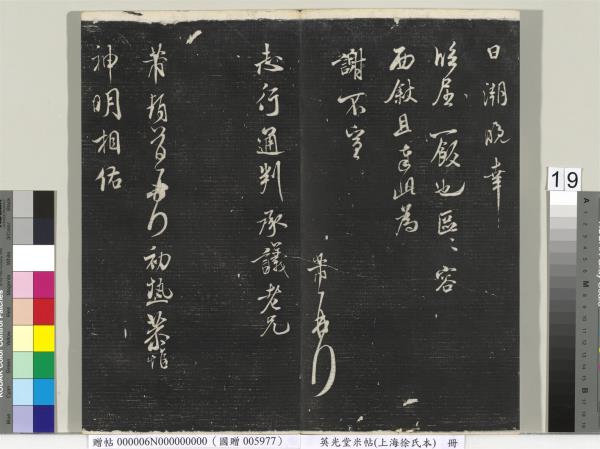 日潮晚幸
臨屈一飯也區〻容
面敘且奉此為
謝不宣
芾再拜
志行通判承議老兄
芾頓首再拜初熱恭惟
神明相佑
19
贈帖 000006N000000000（國贈 005977）
英光堂米帖(上海徐氏本) 冊